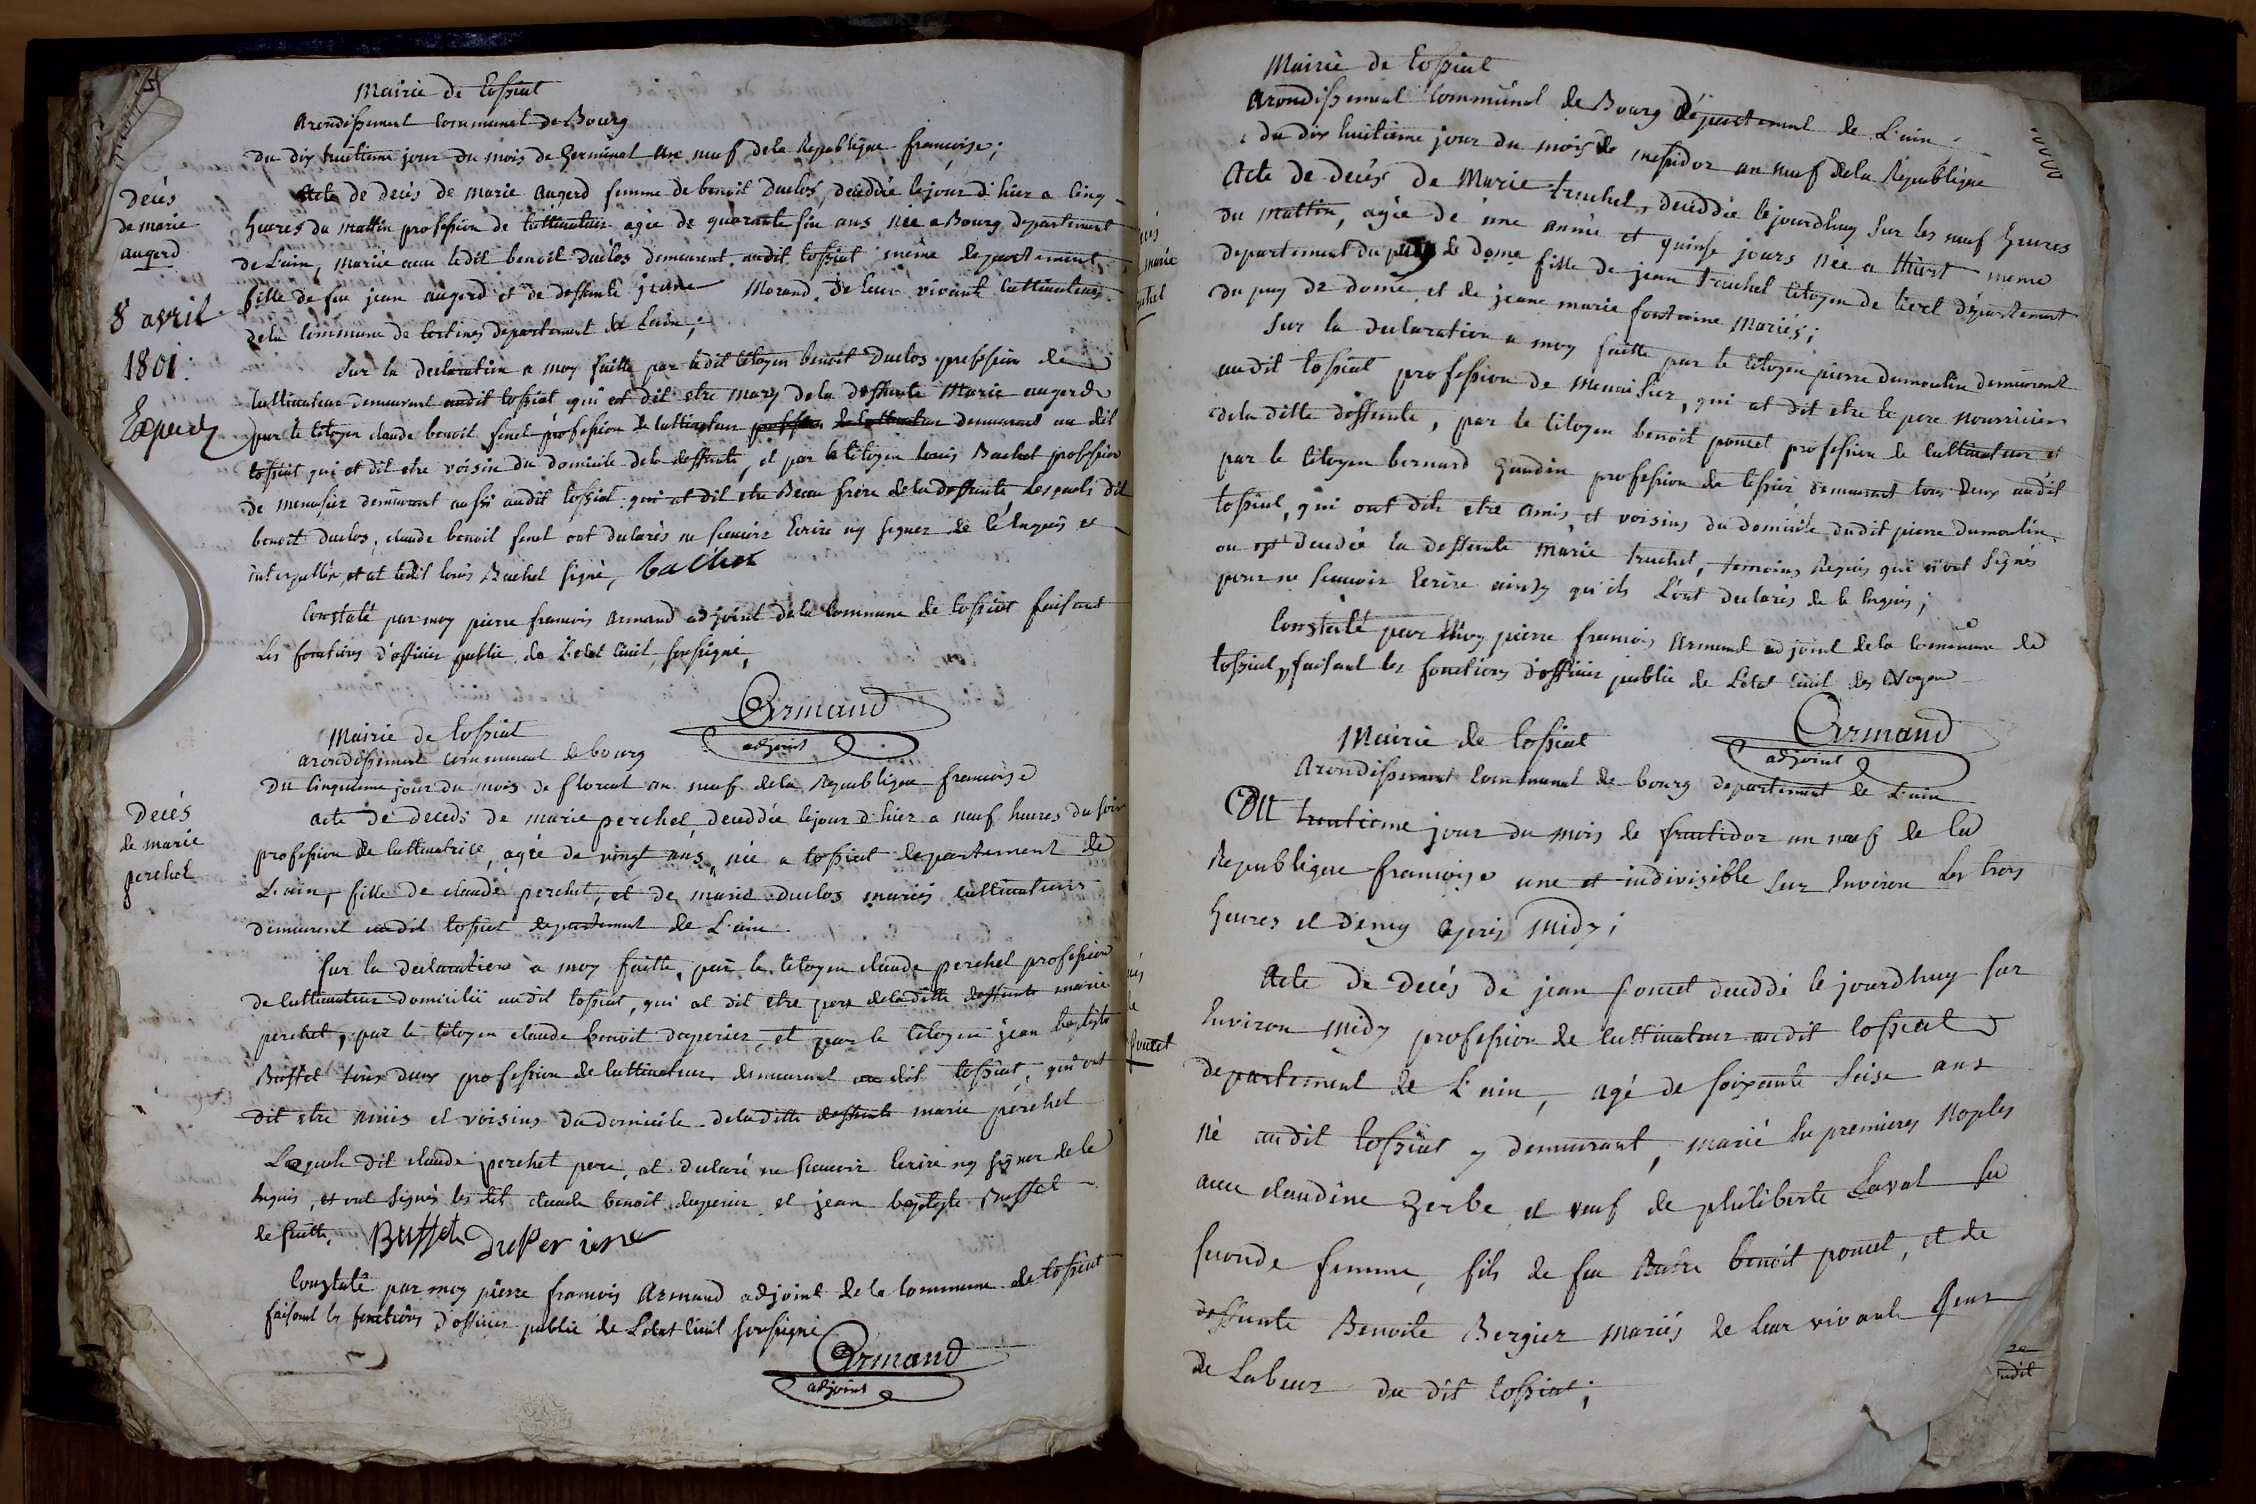 Mairie de tossiat
Arondissement Communal de Bourg
du dix huitieme jour du mois de Germinal an neuf de la Republique francoise;
Decés
de marie
augerd
8 avril
1801.
Acte de decés de marie augerd femme de benoit Duclos, deceddée le jour d'hier a cinq
heures du mattin profession de cultivatrice agée de quarante six ans née a Bourg departement
de L'ain, mariée avec ledit benoit Duclos demeurant audit tossiat même departement,
fille de feu jean augerd et de deffunte jeanne Morand, de leur vivant cultivateurs
de la commune de Certines departement de L'ain;
Sur la declaration a moy faitte par ledit citoyen benoit Duclos profession de
cultivateur demeurant audit tossiat qui at dit etre mary de la deffunte Marie augerd
par le citoyen claude benoit profession de cultivateur demeurant au dit
tossiat qui at dit etre voisin du domicile de la deffunte, et par le citoyen louis Bachet profession
de menusier demeurant aussi audit tossiat qui at dit etre Beau frere de la deffunte Lesquels dit
benoit duclos, claude benoit ont declarés ne scavoir Ecrire ny signer de ce Enquis et
interpellés, et at ledit louis Bachet signé, bachet
Constaté par moy pierre francois armand adjoint de la Commune de tossiat faisant
les fonctions d'officier public de L'etat Civil, soussigné,
Armand
adjoint
Mairie de tossiat
arondissement communal de bourg
Du Cinquieme jour du mois de floreal an neuf de la Republique francoise
Decés
de marie
perchet
acte de deceds de marie perchet, deceddée le jour d'hier a neuf heures du soir
profession de cultivatrice, agée de vingt ans, née a tossiat departement de
L'ain, fille de claude perchet, et de marie duclos mariés cultivateurs
demeurant audit tossiat departement de L'ain
Sur la declaration a moy faitte, par le citoyen claude perchet profession
de cultivateur domicilié audit tossiat, qui at dit etre pere de la ditte deffunte marie
perchet, par le citoyen claude benoit duperier, et par le citoyen jean baptiste
Buffet tous deux profession de cultivateur demeurant au dit tossiat, qui ont
dit etre amis et voisins du domicile de la ditte deffunte marie perchet
Lesquels dit claude perchet pere, at declaré ne scavoir Ecrire ny signer de ce
Enquis, et ont signés les dit claude benoit duperier et jean baptiste Buffet
de suitte. Buffet
Constaté par moy pierre francois armand adjoint de la Commune de tossiat
faisant les fonctions d'officier public de L'etat Civil soussigné
Armand
adjoint
Mairie de tossiat
Arondissement Communal de Bourg departement de L'ain
du dix huitieme jour du mois de messidor an neuf de la Republique
Acte de decés de Marie truchet, deceddée le jourdhuy sur les neuf heures
du mattin, agée de une année et quinse jours née a thiert meme
departement du puy de dome fille de jean truchet citoyen de tiert département
du puy de dome et de jeane marie fontaine mariés;
Sur la declaration a moy faitte par le citoyen pierre dumoulin demeurant
audit tossiat profession de menuisier, qui at dit etre le pere nourricier
de la ditte deffunte, par le citoyen benoit poncet profession de cultivateur et
par le citoyen bernard Gaudin profession de tissier demeurant tous deux audit
tossiat, qui ont dit etre amis et voisins du domicile dudit pierre dumoulin
ou est deceddée la deffunte marie truchet, temoins Requis qui n'ont signés
pour ne scavoir Ecrire ainsy qu'ils L'ont declarés de ce Enquis;
Constaté par Moy pierre francois Armand adjoint de la commune de
tossiat, faisant les fonctions d'officier public de L'etat Civil des Citoyens
Armand
adjoint
Mairie de tossiat
Arondissement Communal de bourg departement de L'ain
DU trentieme jour du mois de fructidor an neuf de la
Republique francoise une et indivisible sur Environ les trois
heures et demy apres Midy;
Acte de decés de jean poncet deceddé le jourdhuy sur
Environ midy profession de cultivateur audit tossiat
departement de L'ain, agé de soixante seise ans
né audit tossiat y demeurant, marié en premieres Nopces
avec claudine Zerbe et veuf de philiberte Laval sa
seconde femme, fils de feu benoit poncet, et de
deffunte Benoite Bergier mariés de leur vivant Gens
de Labeur du dit tossiat;